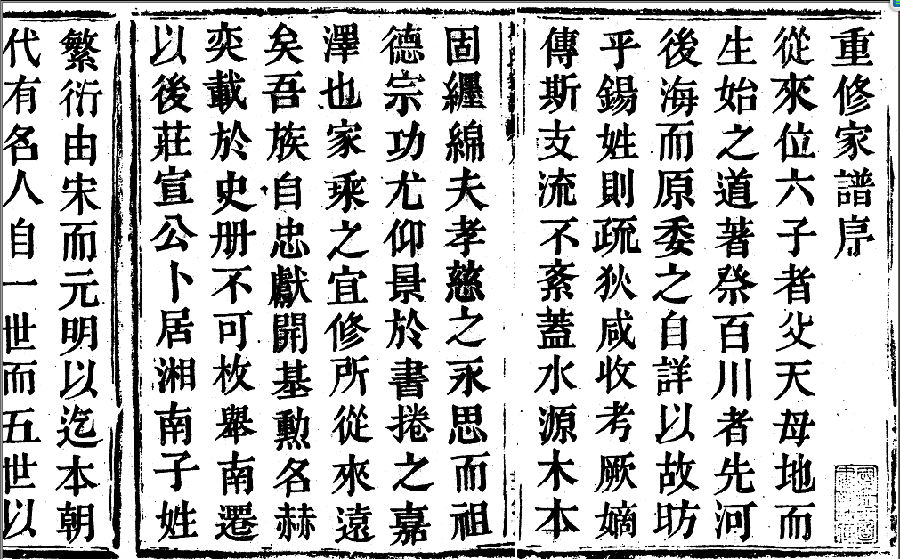 重修家譜序
從來位六子者父天母地而
生始之道著祭百川者先河
後海而原委之自詳以故昉
乎錫姓則疏狄咸收考厥嫡
傳斯支流不紊蓋水源木本
固纏綿夫孝慈之永思而祖
德宗功尤仰景於書捲之嘉
澤也家乘之宜修所從來遠
矣吾族自忠獻開基勳名赫
奕載於史册不可枚舉南遷
以後莊宣公卜居湘南子姓
繁衍由宋而元明以迄本朝
代有名人自一世而五世以